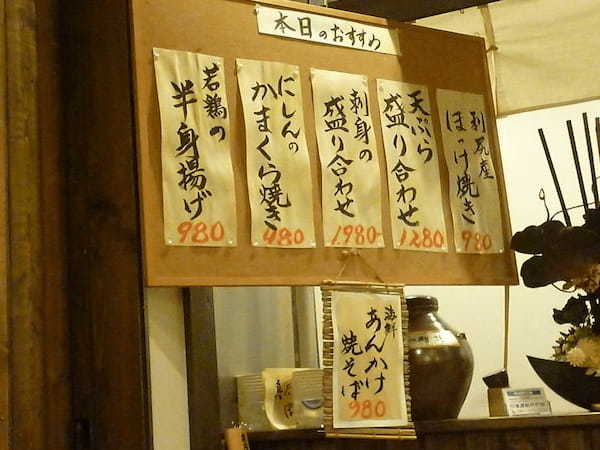 本日のおすすめ
利尻産
ほっけ焼き
980
天ぷら
盛り合わせ
1280
刺身の
盛り合わせ
1980-
にしんの
かまくら焼き
480
若鶏の
半身揚げ
980
海鮮
あんかけ
焼そば
980